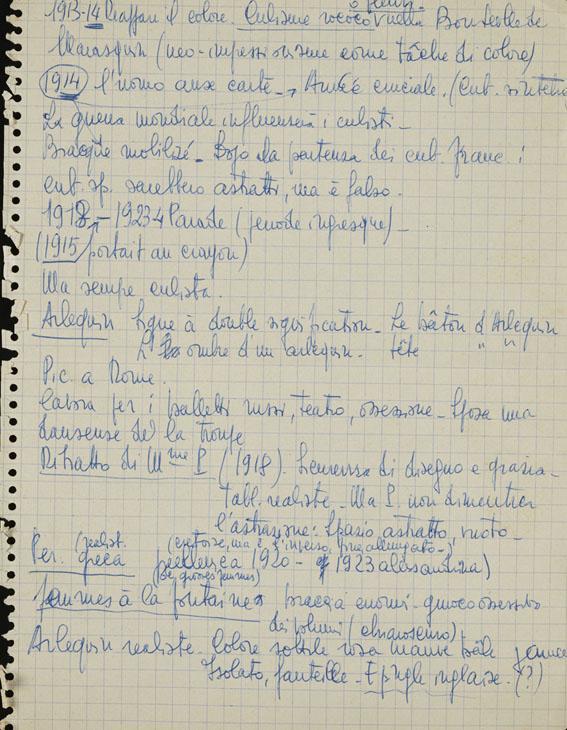 fleuri
1913-14 Riaffari il colore. Cubisme rococo nella Bouteille de
Marasquin (neo-impressionisme come tâche di colore)
1914 l'uomo aux carte → Année cruciale. (Cub. sintetic
La guerra mondiale influenserà i cubisti -
Bracque mobilizé - Dopo la partenza dei cub. franc. i
cub. sp. sarebbero astratti, ma è falso.
1918 - 1923-4 Parade (periode ingresque) -
(1915 portait au crayon)
Ma sempre cubista.
Arlequin ligne à double signification - Le bâton d'Arlequin
L'ombre d'un arlequin. tête " "
Pic. a Rome.
Lavora per i balletti russi, teatro, ossessione - Sposa una
danseuse de la troupe
Ritratto di Mme P (1918). di disegno e grazia -
Tabl. realiste - Ma P. non dimentica
l'astrazione: Spazio astratto, vuoto -
(realist.
Per. greca 1920 - 1923 alessandrina)
(le grosses femmes)
Femmes à la fontaine braccia enormi - giuoco ossessivo
dei volumi (chiaroscuro)
Arlequin realiste - Colore sottile rosa mauve pâle jaune
Isolato, fauteille - Epingle inglaise. (?)